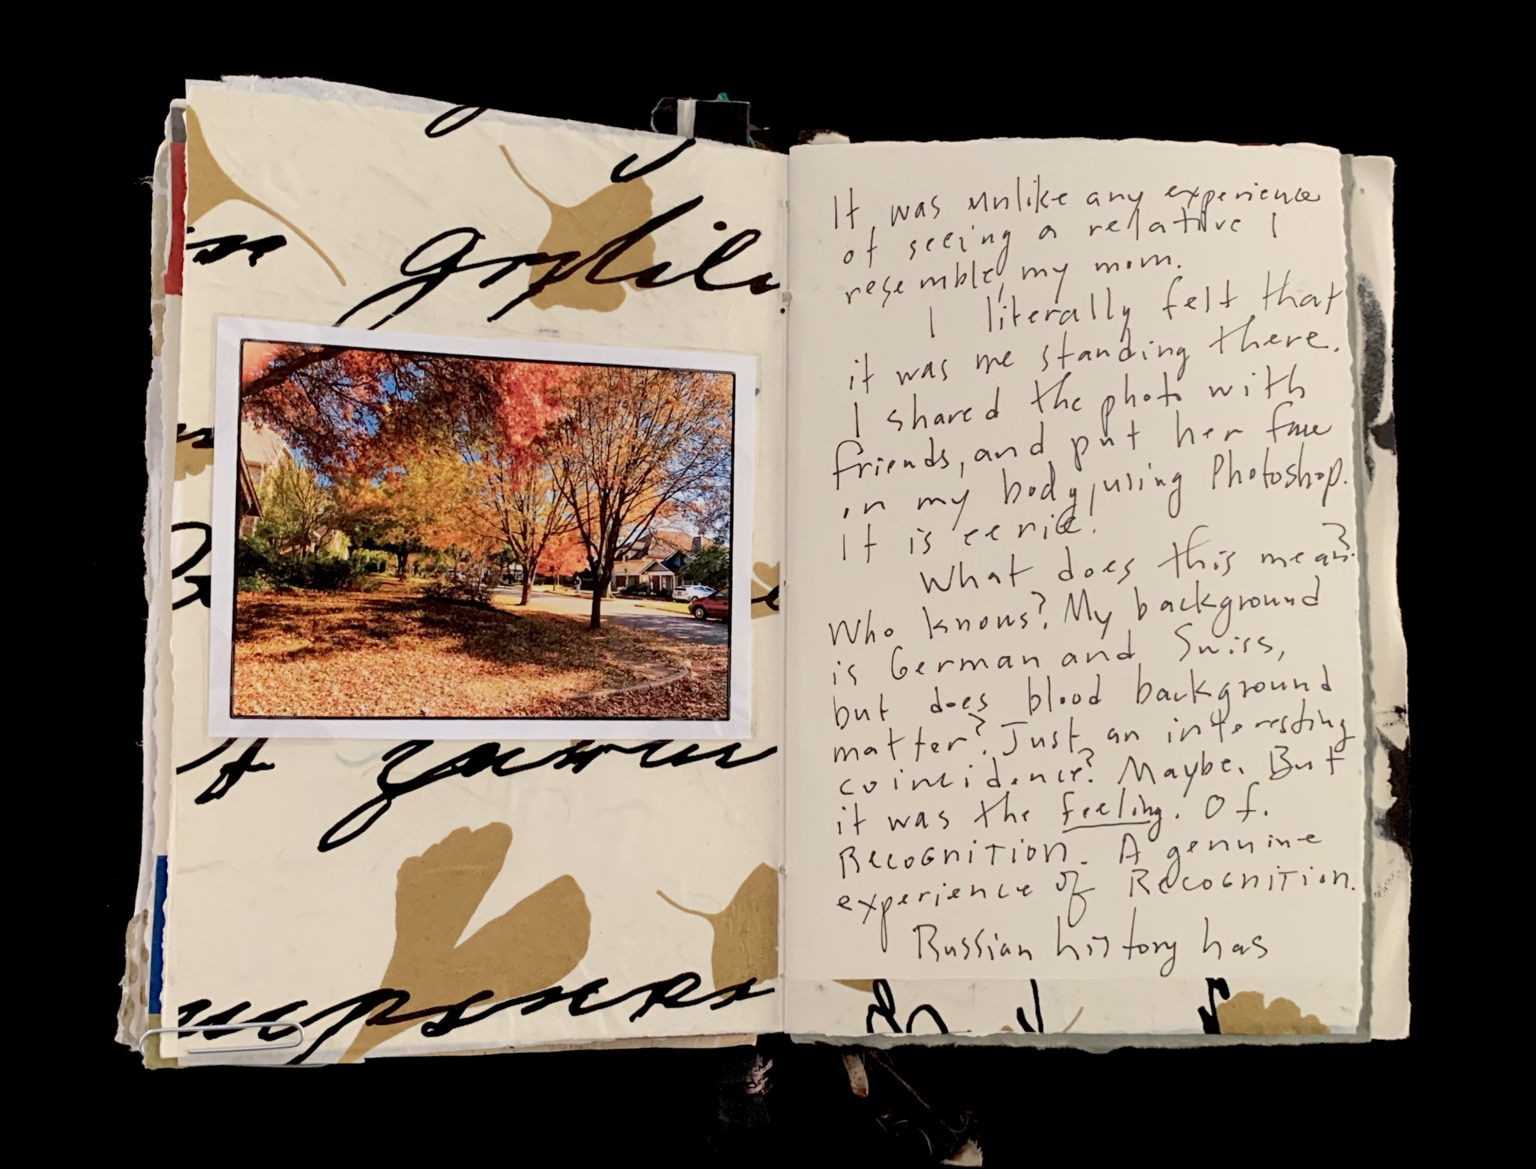 It was unlike any experience
of seeing a relative I
resemble, my mom.
I literally felt that
it was me standing there.
I shared the photo with
friends, and put her face
on my body, using Photoshop.
It is eerie!
What does this mean?
Who knows? My background
is German and Swiss,
but does blood background
matter? Just an interesting
coincidence? Maybe. But
it was the feeling. Of.
RECOGNITION. A genuine
experience of RECOGNITION.
Russian history has